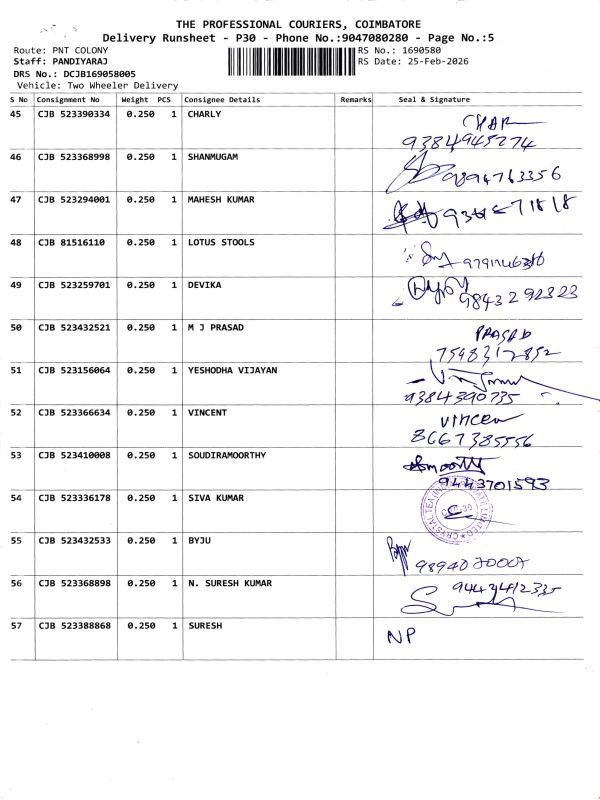 THE PROFESSIONAL COURIERS, COIMBATORE
Delivery Runsheet - P30 - Phone No.:9047080280 - Page No.:5
Route: PNT COLONY
RS No.: 1690580
Staff: PANDIYARAJ
RS Date: 25-Feb-2026
DRS No.: DCJB169058005
Vehicle: Two Wheeler Delivery
S No Consignment No Weight PCS Consignee Details Remarks Seal & Signature
45 CJB 523390334 0.250 1 CHARLY
9384945274
46 CJB 523368998 0.250 1 SHANMUGAM
9894763356
47 CJB 523294001 0.250 1 MAHESH KUMAR
48 CJB 81516110 0.250 1 LOTUS STOOLS
49 CJB 523259701 0.250 1 DEVIKA
9843292323
50 CJB 523432521 0.250 1 M J PRASAD
PRASAD
7598317852
51 CJB 523156064 0.250 1 YESHODHA VIJAYAN
9384390735
52 CJB 523366634 0.250 1 VINCENT
Vincen
8667385556
53 CJB 523410008 0.250 1 SOUDIRAMOORTHY
9443701593
54 CJB 523336178 0.250 1 SIVA KUMAR
55 CJB 523432533 0.250 1 BYJU
56 CJB 523368898 0.250 1 N. SURESH KUMAR
57 CJB 523388868 0.250 1 SURESH
NP